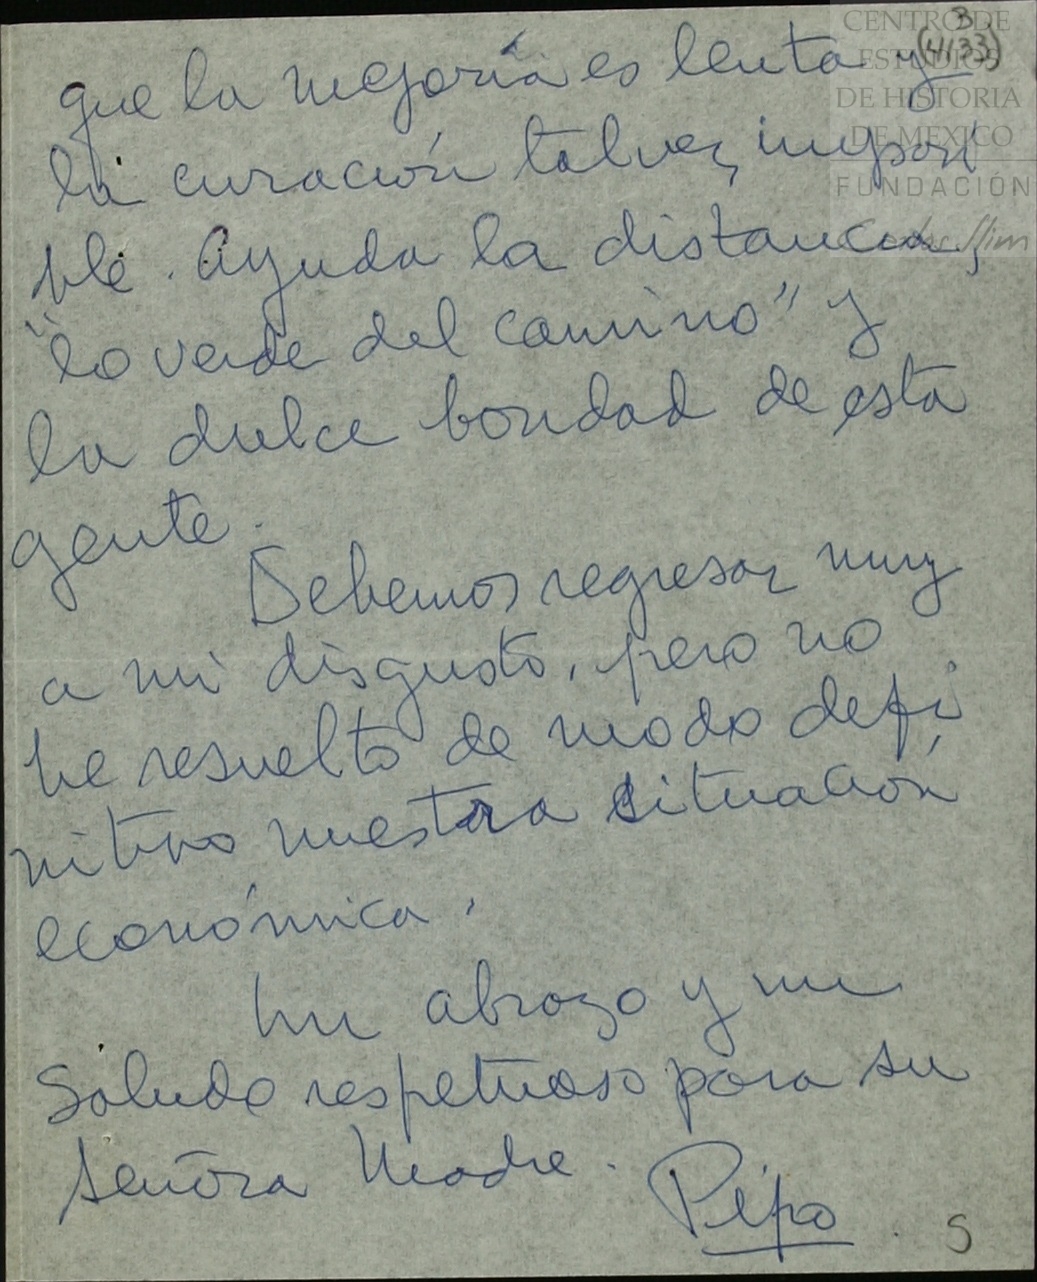 CENTRO DE
ESTUDIOS
DE HISTORIA
DE MEXICO
FUNDACIÓN
Carlos Slim
3
(4/33)
que la mejoría es lenta y
la curación talvez, imposi
ble. Ayuda la distancia,
"lo verde del camino" y
la dulce bondad de esta
gente.
Debemos regresar muy
a mi disgusto, pero no
he resuelto de modo defi
nitivo nuestra situación
económica.
Un abrazo y mi
saludo respetuoso para su
Señora Madre.
Pepo
5